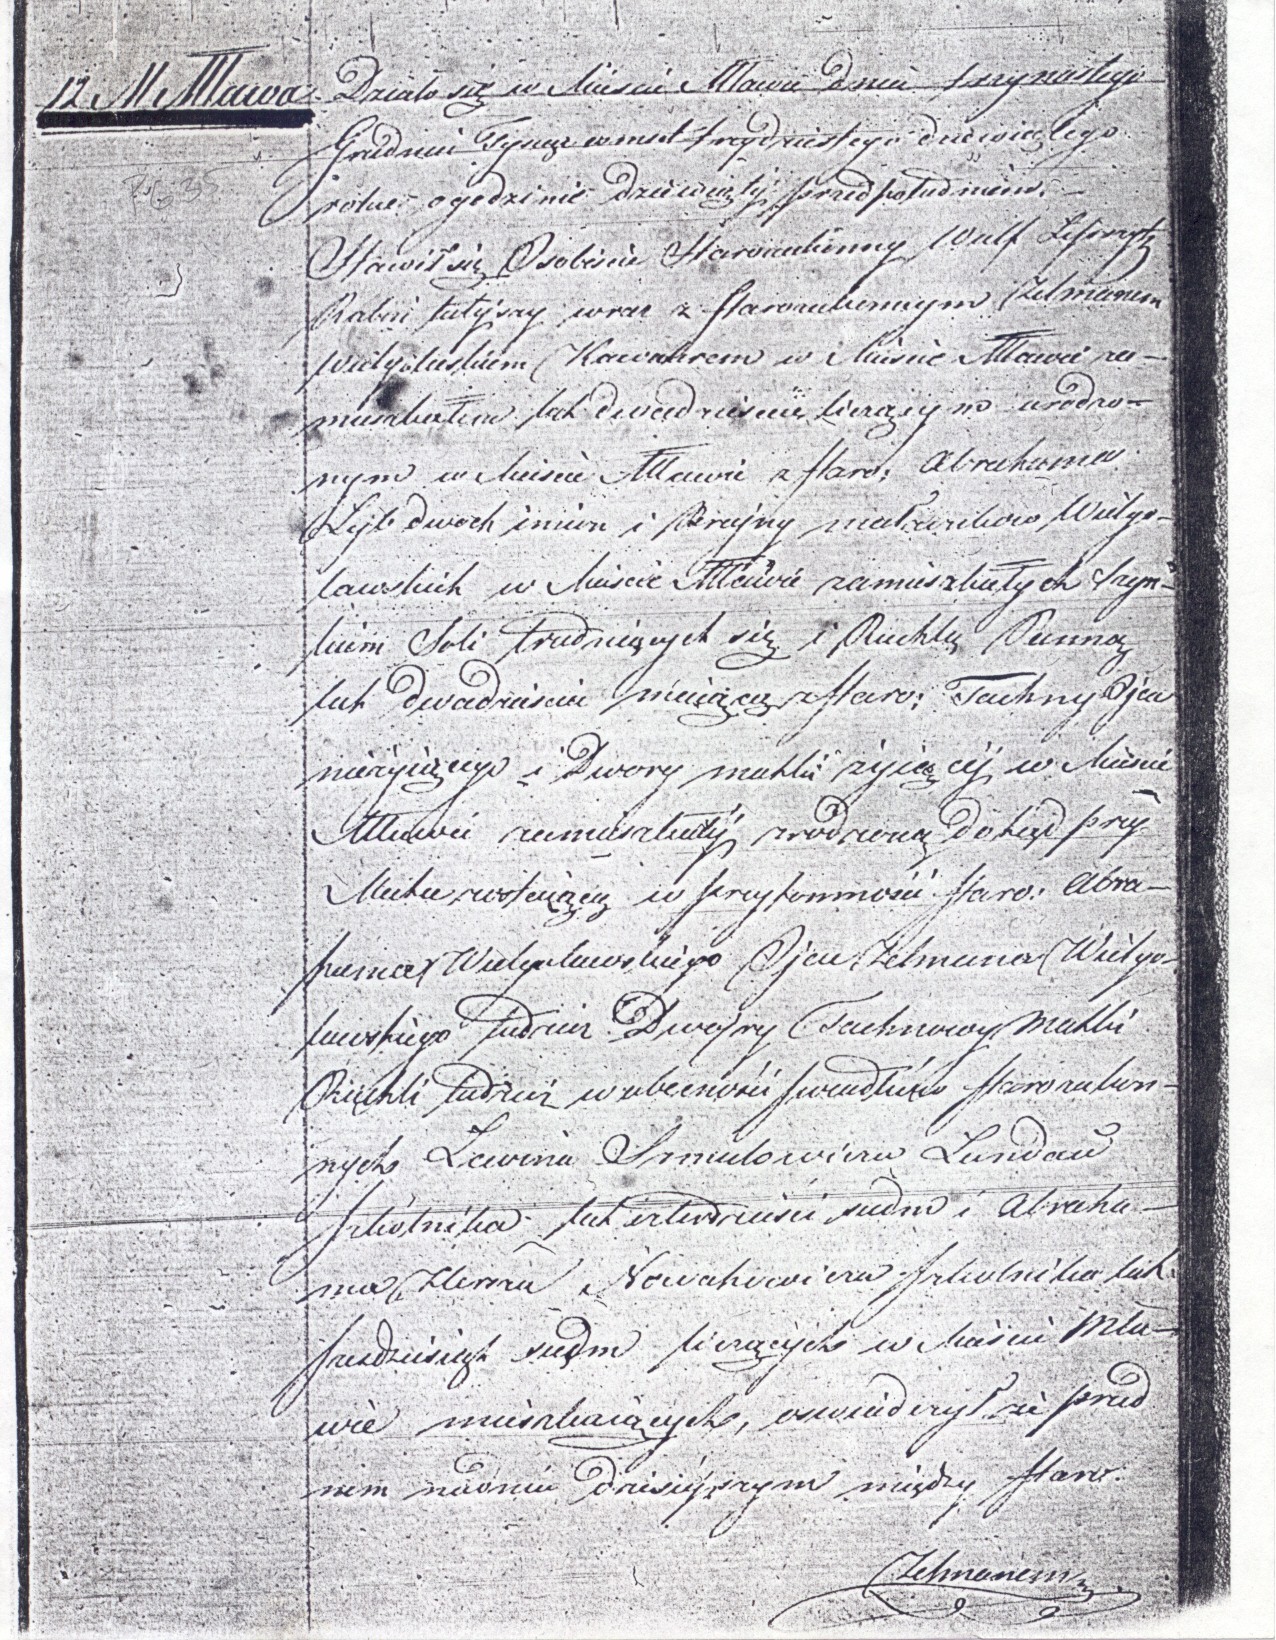 12 M Mława
Działo się w Mieście Mławie dnia trzynastego
Grudnia Tysiąc osmset trzydziestego dziewiątego
roku o godzinie dziewiątéj przed południem.
Stawił się Osobiście Starozakonny Wulf
Rabin tutéjszy wraz z Starozakonnym Zelmanem
Kawalerem w Mieście Mławie za-
mieszkałem lat dwadzieścia liczącym urodzo-
nym w Mieście Mławie z Staro: Abrahama
Lejb dwoch imion i małżonkow Wielgo-
ławskich w Mieście Mławie zamieszkałych szyn-
kiem Soli trudniących się i Ruchlą Panną
lat dwadzieścia maiącą z Staro: Tachny Ojca
nieżyiącego i Dwory matki żyiącéj w Mieście
Mławie zamieszkałéj zrodzoną dotąd przy
Matce zostaiącą w przytomności Staro: Abra-
hama Wielgoławskiego Ojca Zelmana Wielgo-
ławskiego tudzież Dwojry Tachnowy Matki
Ruchli tudzież w obecności swiadków Starozakon-
nych Lewina Smulowicza Landau
szkolnika lat czterdzieści siedm i Abraha-
ma Nowakowicza szkolnika lat
siedm liczących w Mieście Mła-
wie mieszkaiących, oswiadczył że przed
nim na dniu dzisiéjszym między Staro:
Zelmanem